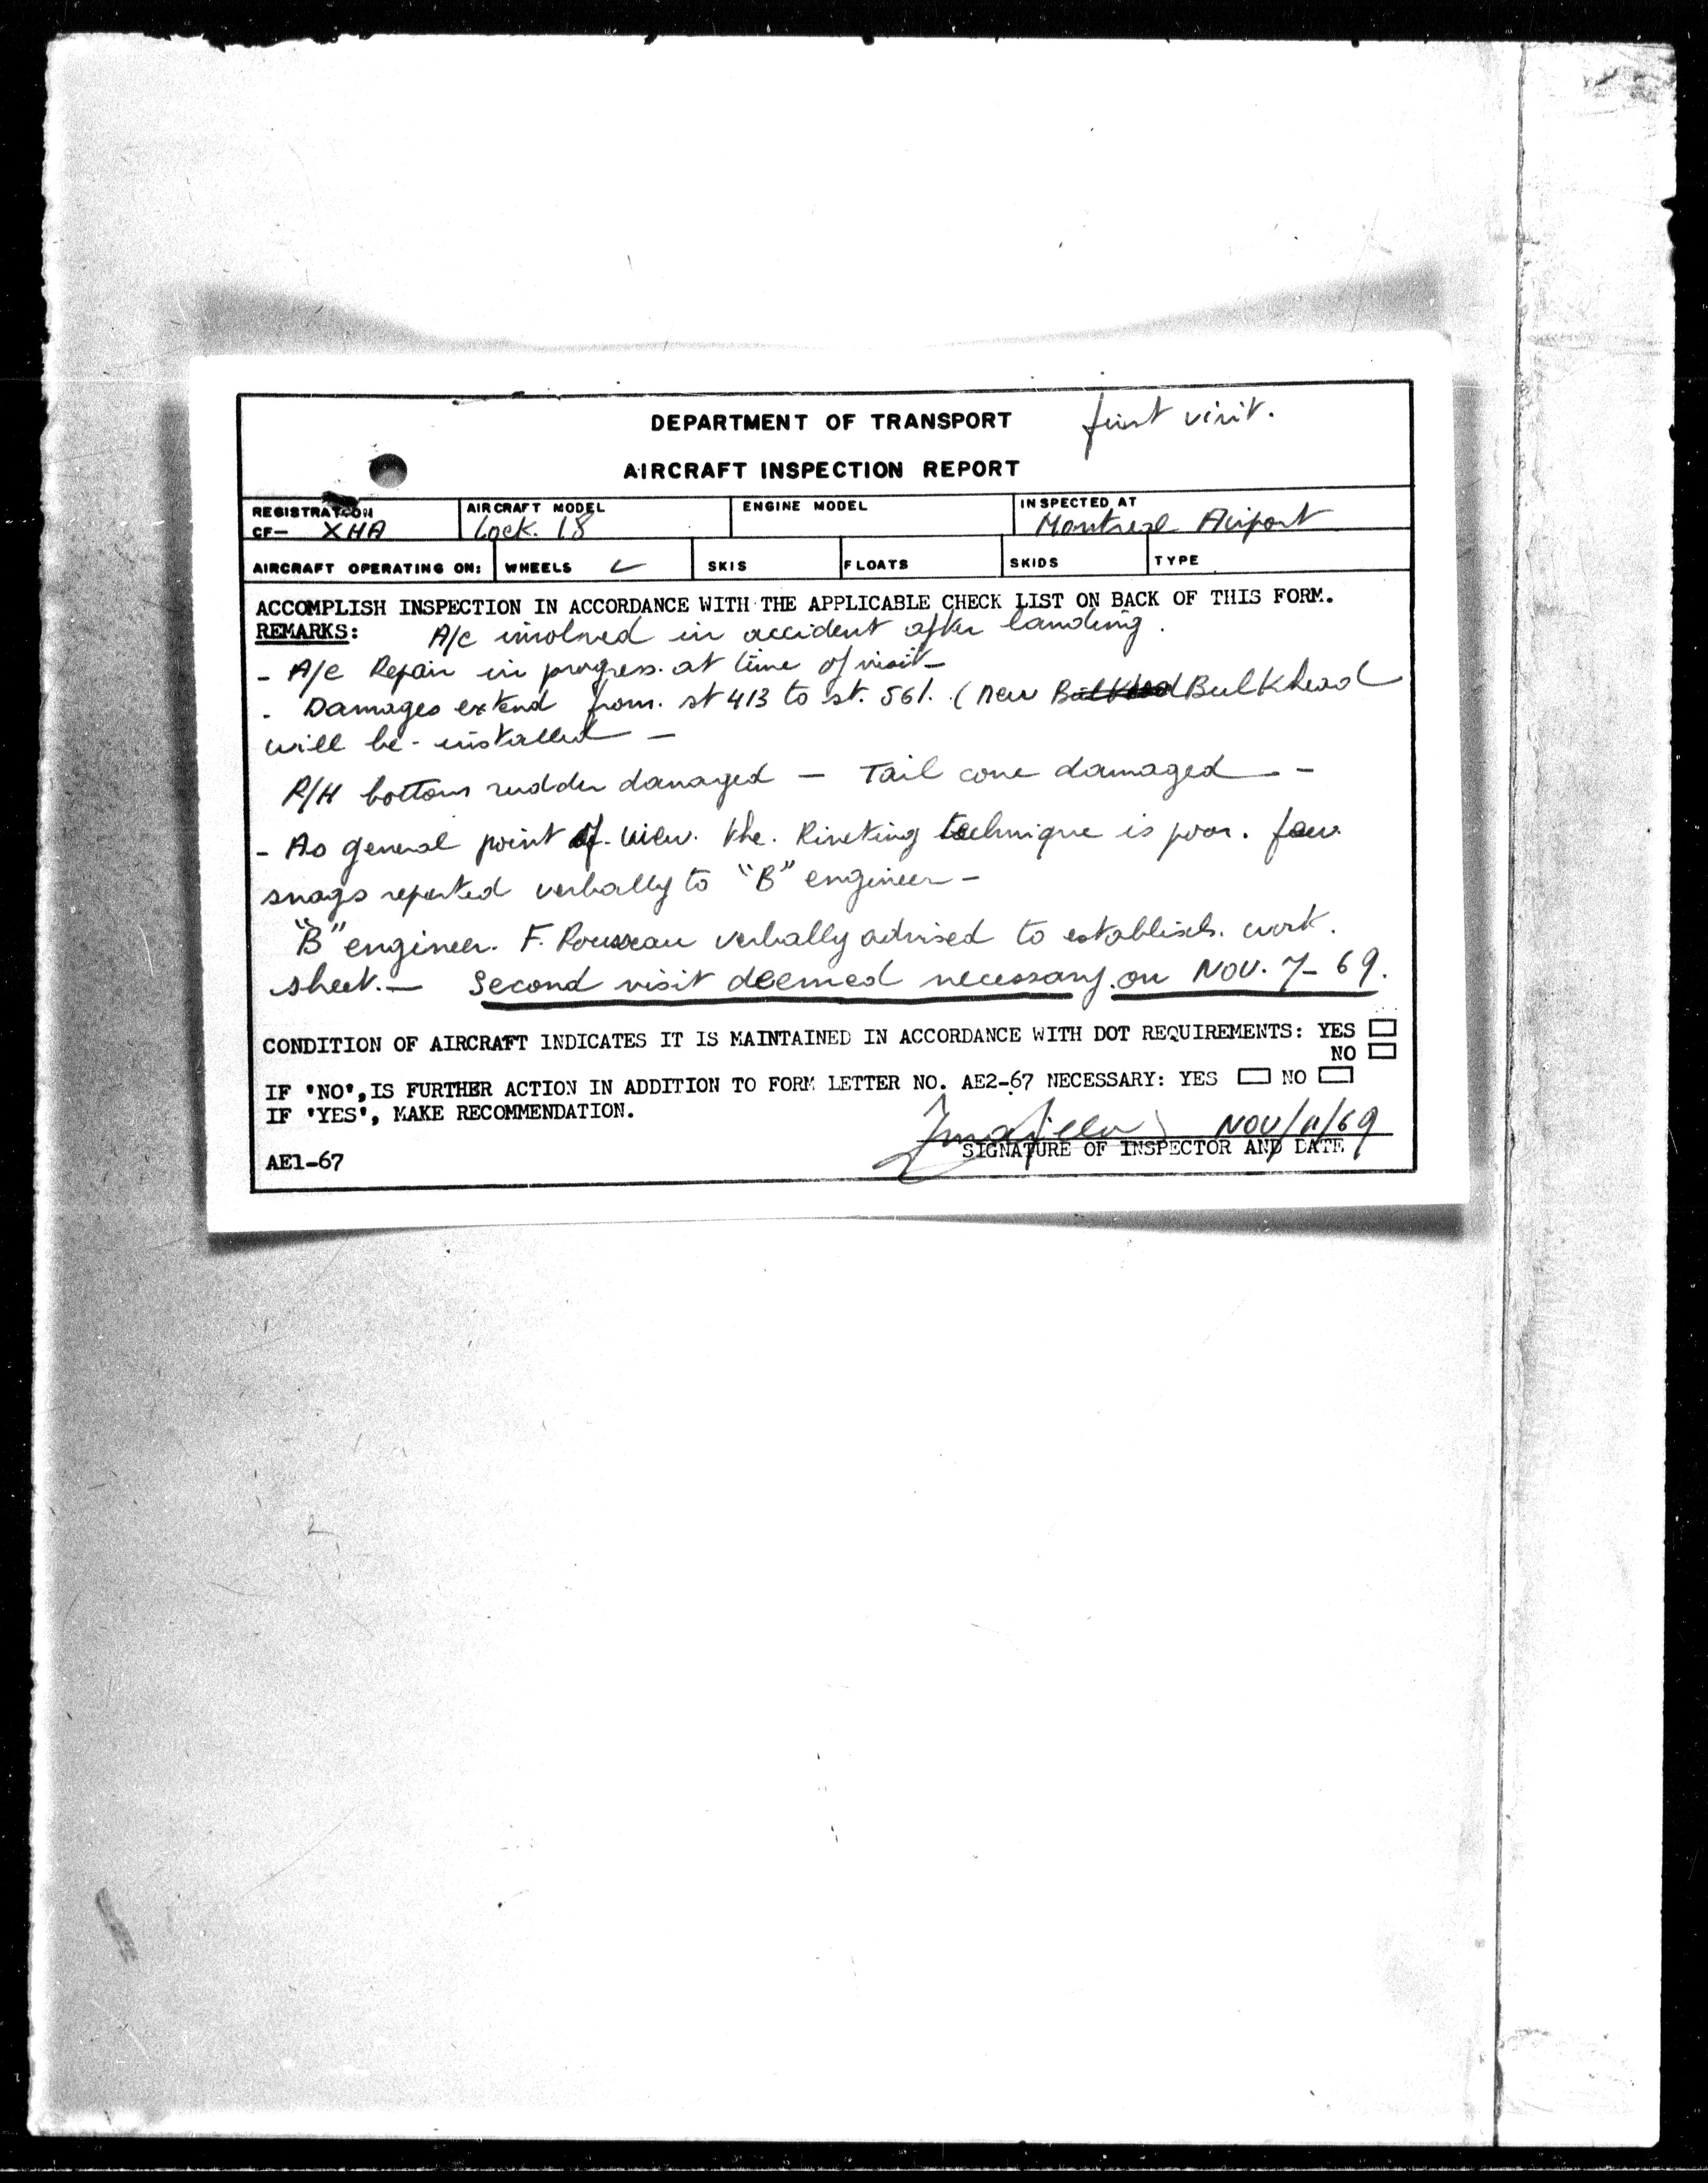 first visit.
DEPARTMENT OF TRANSPORT
AIRCRAFT INSPECTION REPORT
REGISTRATION AIRCRAFT MODEL ENGINE MODEL INSPECTED AT
CF- XHA Lock. 18 Montreal Airport
AIRCRAFT OPERATING ON: WHEELS ✓ SKIS FLOATS SKIDS TYPE
ACCOMPLISH INSPECTION IN ACCORDANCE WITH THE APPLICABLE CHECK LIST ON BACK OF THIS FORM.
REMARKS: A/c involved in accident after landing.
- A/c Repair in progress. at time of visit-
- Damages extend from. st 413 to st. 561. (new Bulkhead Bulkhead
will be- installed -
R/H bottom rudder damaged - Tail cone damaged - -
- As general point of. view. the. Riveting technique is poor. few
snags reported verbally to "B" engineer -
"B" engineer. F. Rousseau verbally advised to establish. work.
sheet. - Second visit deemed necessary. on NOV. 7- 69.
CONDITION OF AIRCRAFT INDICATES IT IS MAINTAINED IN ACCORDANCE WITH DOT REQUIREMENTS: YES
NO
IF 'NO', IS FURTHER ACTION IN ADDITION TO FORM LETTER NO. AE2-67 NECESSARY: YES NO
IF 'YES', MAKE RECOMMENDATION.
NOV/11/69
SIGNATURE OF INSPECTOR AND DATE
AE1-67